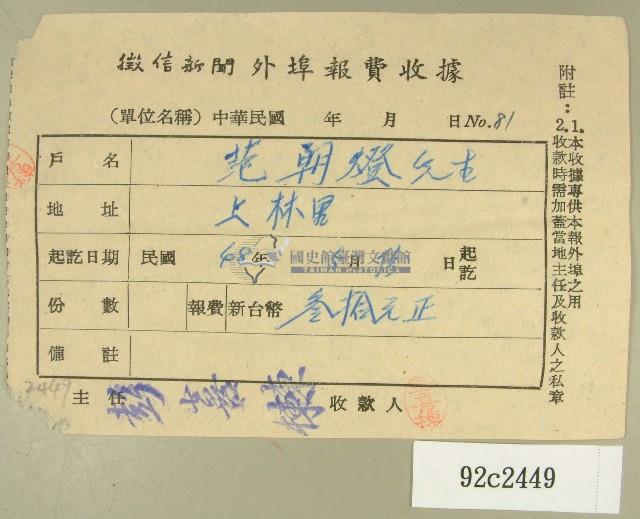 徵信新聞 外埠報費收據
(單位名稱) 中華民國 年 月 日 No. 81
戶名 范朝燈先生
地址 上林里
起訖日期 民國 48年 月 日 起訖
份數 報費 新台幣 叁拾元正
備註
主任 收款人
附註:1.本收據專供本報外埠之用
2.收款時需加蓋當地主任及收款人之私章
國史館臺灣文獻館
TAIWAN HISTORICA
2449
92c2449